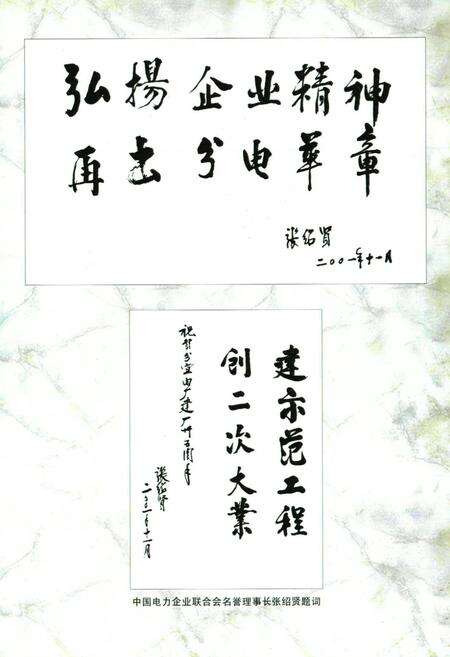 弘揚企业精神
再出分电華章
张绍贤
二〇〇一年十一月
建示范工程
创二次大業
祝贺分宜电厂建厂卅五周年
张绍贤
二〇〇一年十一月
中国电力企业联合会名誉理事长张绍贤题词